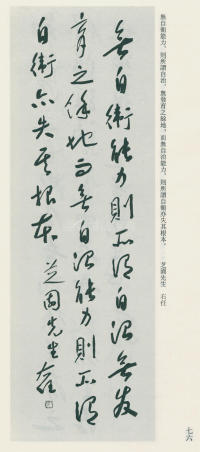 無自衛能力，則所謂自治，無發育之餘地。而無自治能力，則所謂自衛亦失其根本。 芝園先生 右任
無自衛能力則所謂自治無發
育之餘地而無自治能力則所謂
自衛亦失其根本 芝園先生 右任
七六